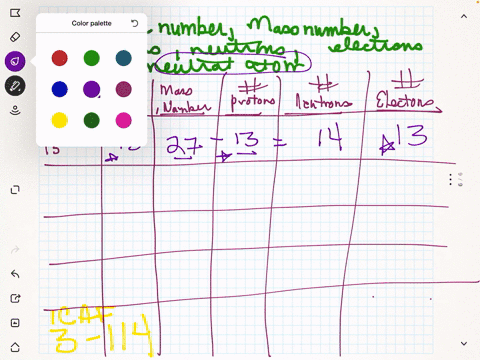 Color palette
number, Mass number,
neutrons, electrons
neutral atom
Mass # # #
Number protons Neutrons Electrons
13 27 - 13 = 14 13
3-114